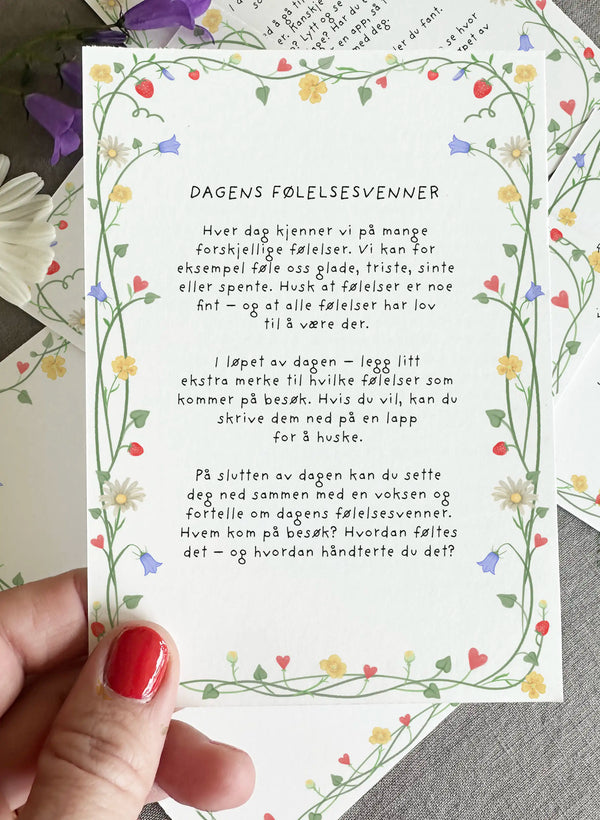 å gå til
. Kanskje
? Lytt og se
nge? Har du
en app, så
med deg.
er du fant.
se hvor
pet av
DAGENS FØLELSESVENNER
Hver dag kjenner vi på mange
forskjellige følelser. Vi kan for
eksempel føle oss glade, triste, sinte
eller spente. Husk at følelser er noe
fint – og at alle følelser har lov
til å være der.
I løpet av dagen – legg litt
ekstra merke til hvilke følelser som
kommer på besøk. Hvis du vil, kan du
skrive dem ned på en lapp
for å huske.
På slutten av dagen kan du sette
deg ned sammen med en voksen og
fortelle om dagens følelsesvenner.
Hvem kom på besøk? Hvordan føltes
det – og hvordan håndterte du det?